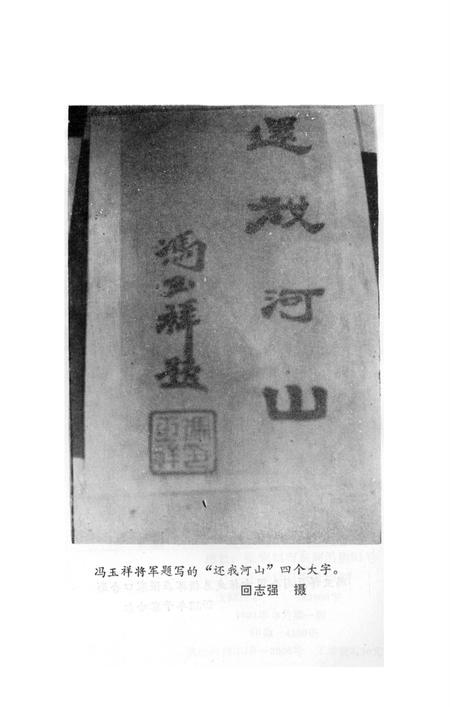 還我河山
馮玉祥題
馮玉祥
冯玉祥将军题写的“还我河山”四个大字。
回志强 摄